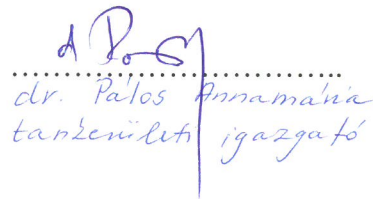 dr. Pálos Annamária
tankerületi igazgató